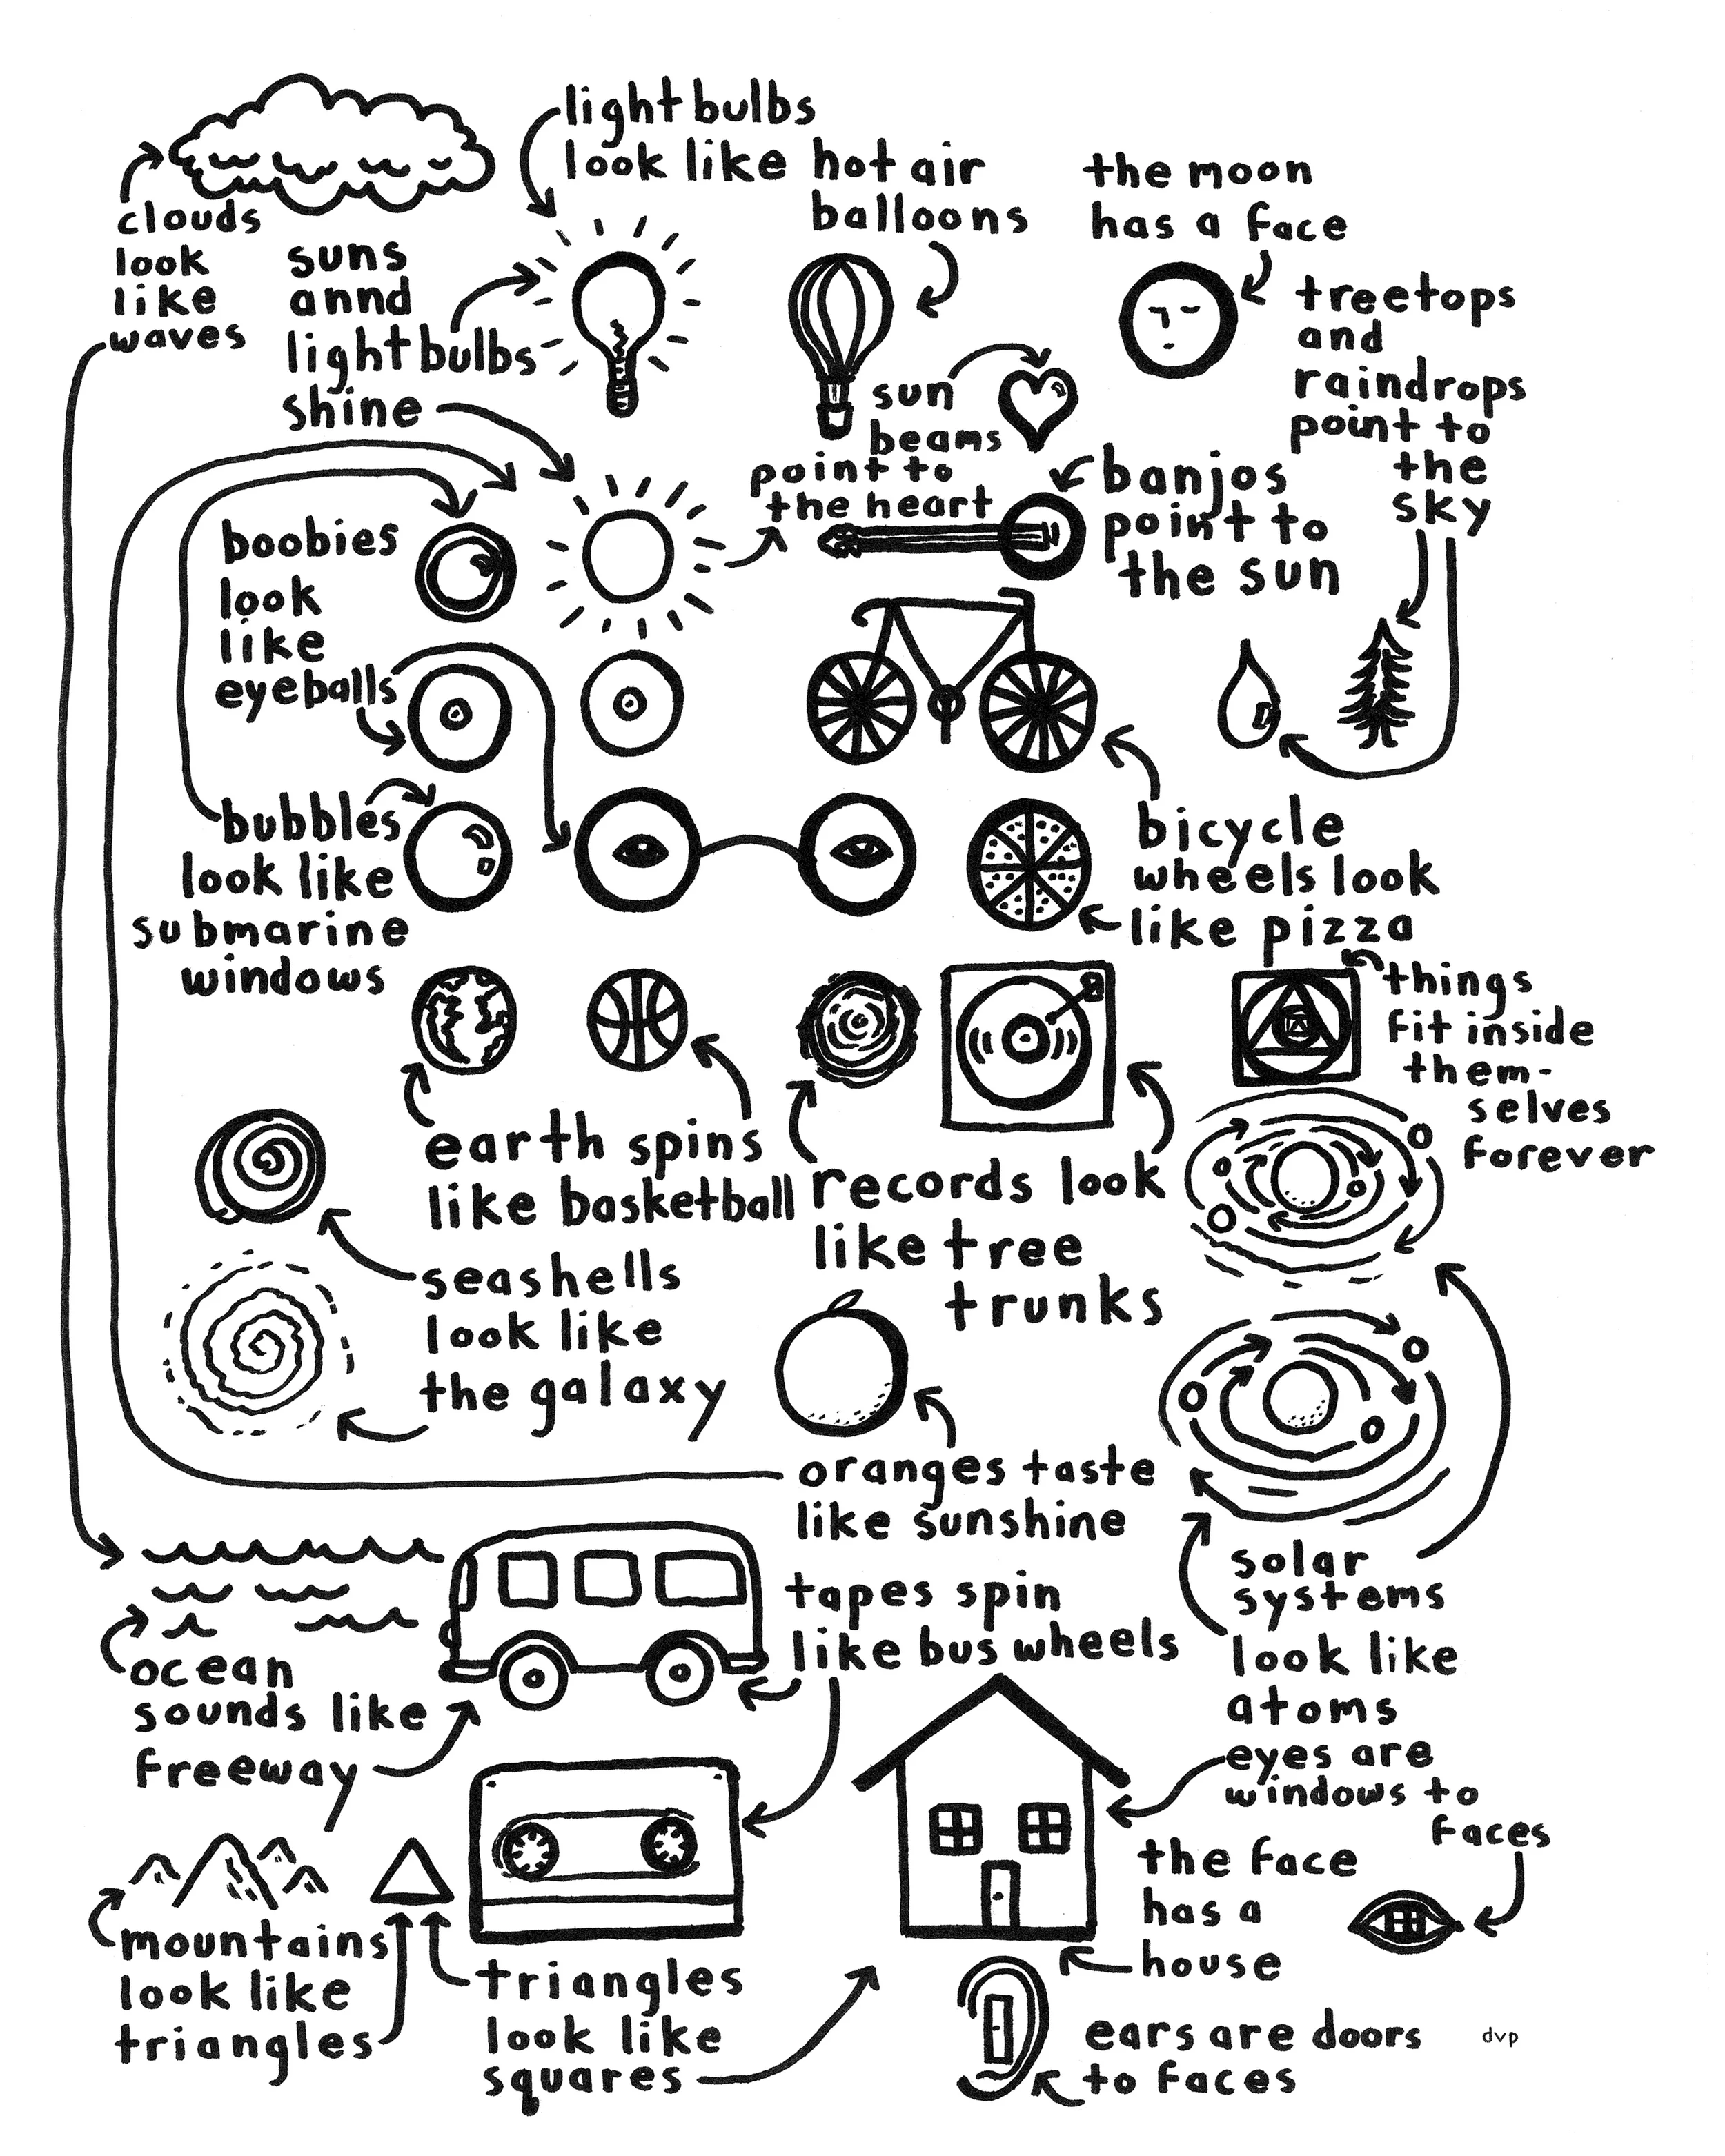 light bulbs
look like hot air
balloons
the moon
has a face
clouds
look
like
waves
suns
annd
light bulbs
shine
treetops
and
raindrops
point to
the
sky
sun
beams
point to
the heart
banjos
point to
the sun
boobies
look
like
eyeballs
bubbles
look like
submarine
windows
bicycle
wheels look
like pizza
things
fit inside
them-
selves
forever
earth spins
like basketball
records look
like tree
trunks
seashells
look like
the galaxy
oranges taste
like sunshine
solar
systems
look like
atoms
tapes spin
like bus wheels
ocean
sounds like
freeway
eyes are
windows to
faces
the face
has a
house
mountains
look like
triangles
triangles
look like
squares
ears are doors
to faces
dvp